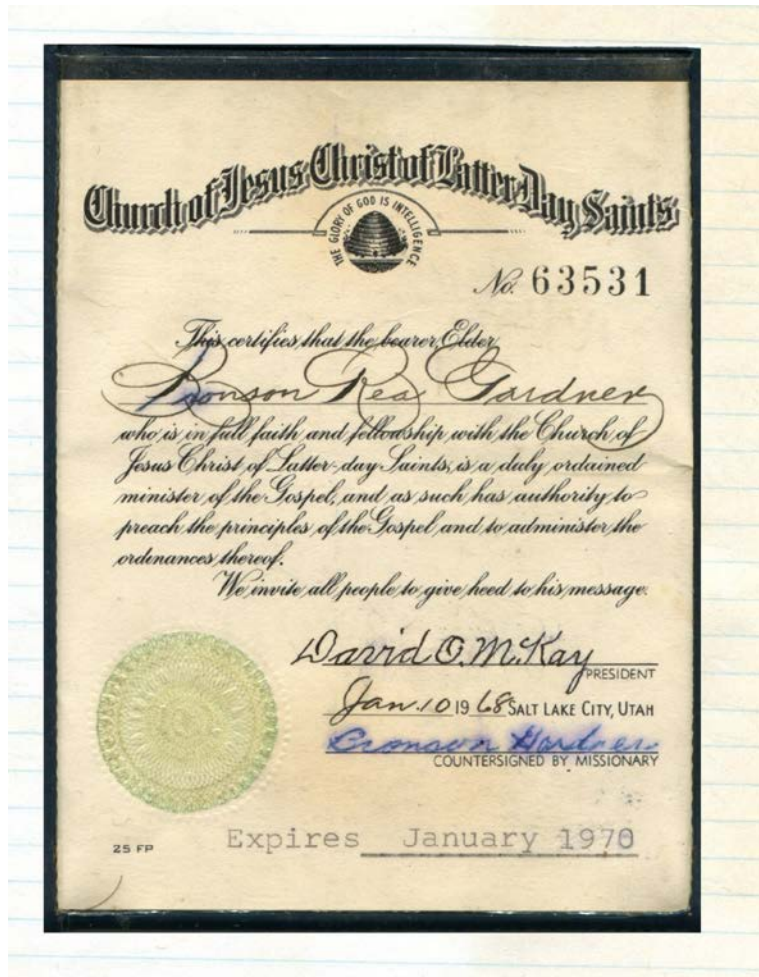 Church of Jesus Christ of Latter Day Saints
THE GLORY OF GOD IS INTELLIGENCE
No. 63531
This certifies that the bearer, Elder
Bronson Rea Gardner
who is in full faith and fellowship with the Church of
Jesus Christ of Latter-day Saints, is a duly ordained
minister of the Gospel, and as such has authority to
preach the principles of the Gospel and to administer the
ordinances thereof.
We invite all people to give heed to his message.
David O. McKay
PRESIDENT
Jan. 10 1968 SALT LAKE CITY, UTAH
Bronson Gardner
COUNTERSIGNED BY MISSIONARY
25 FP
Expires January 1970